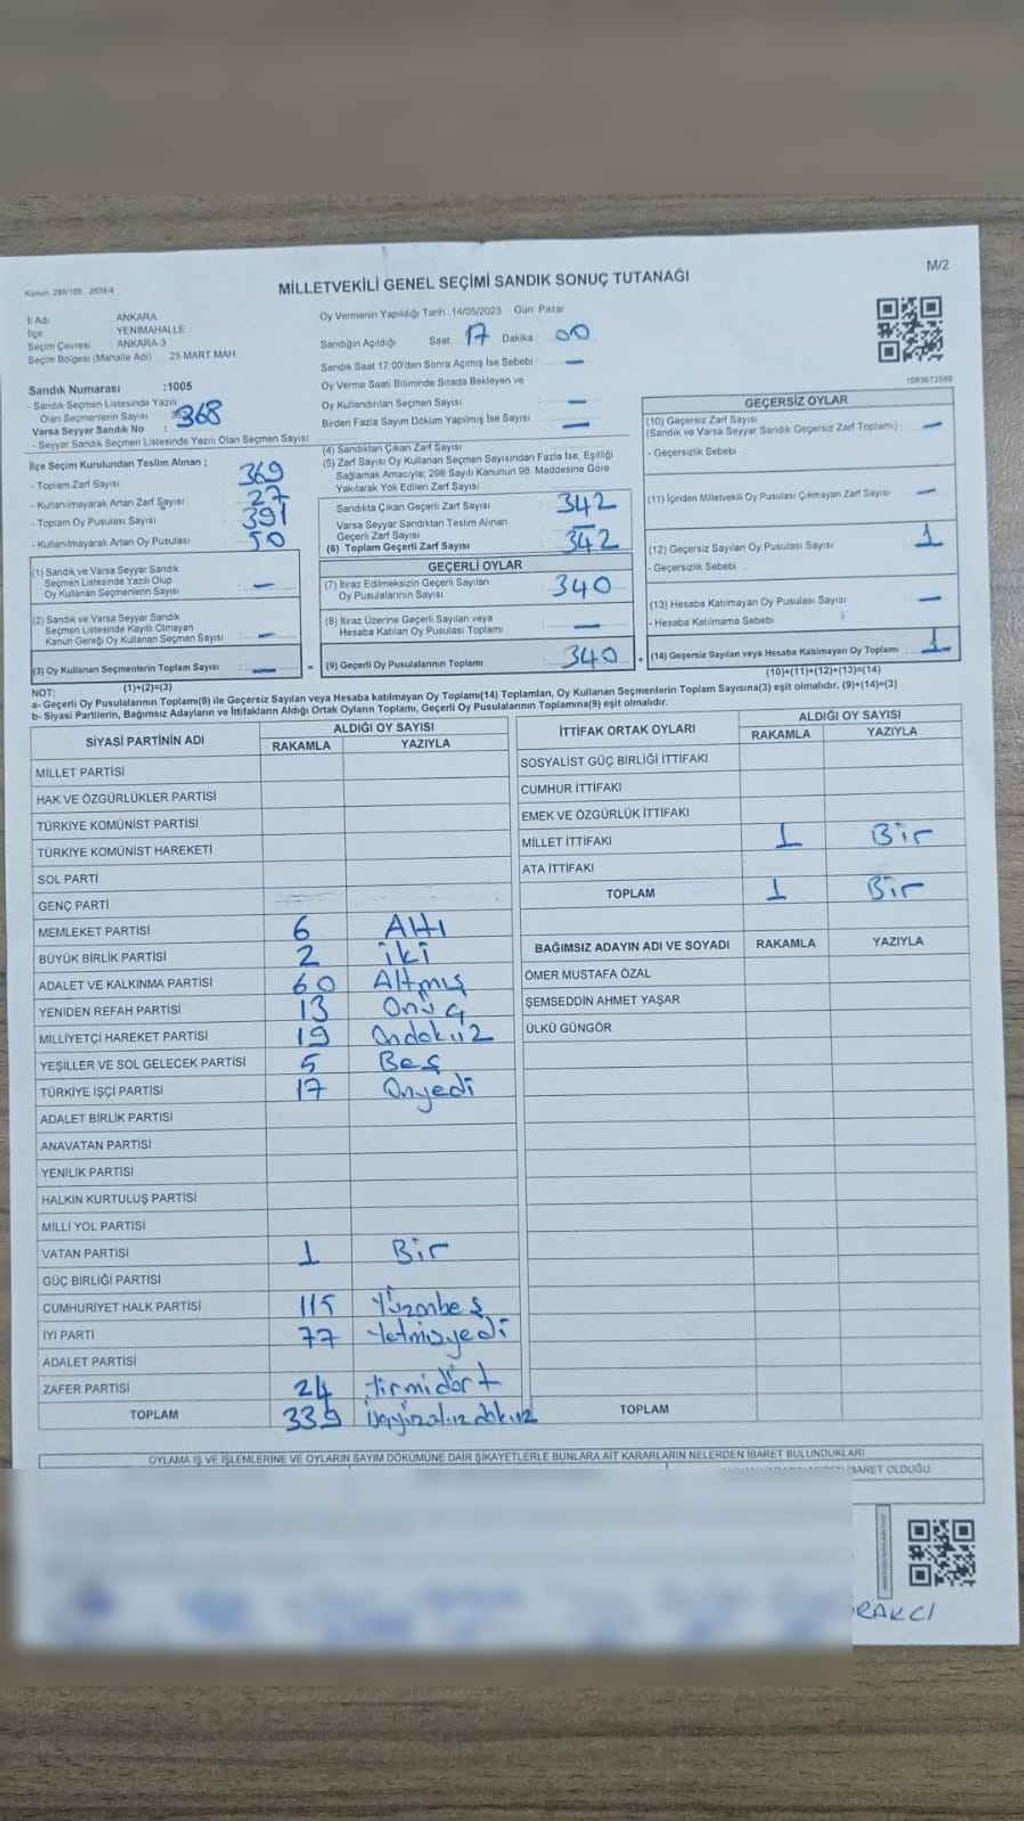 M/2
Kanun: 298/105 2839/4
MİLLETVEKİLİ GENEL SEÇİMİ SANDIK SONUÇ TUTANAĞI
İl Adı : ANKARA
İlçe : YENİMAHALLE
Seçim Çevresi : ANKARA-3
Seçim Bölgesi (Mahalle Adı) : 25 MART MAH.
Sandık Numarası :1005
- Sandık Seçmen Listesinde Yazılı
Olan Seçmenlerin Sayısı : 368
Varsa Seyyar Sandık No :
- Seyyar Sandık Seçmen Listesinde Yazılı Olan Seçmen Sayısı
İlçe Seçim Kurulundan Teslim Alınan ;
- Toplam Zarf Sayısı 369
- Kullanılmayarak Artan Zarf Sayısı 27
- Toplam Oy Pusulası Sayısı 391
- Kullanılmayarak Artan Oy Pusulası 50
(1) Sandık ve Varsa Seyyar Sandık
Seçmen Listesinde Yazılı Olup
Oy Kullanan Seçmenlerin Sayısı —
(2) Sandık ve Varsa Seyyar Sandık
Seçmen Listesinde Kayıtlı Olmayan
Kanun Gereği Oy Kullanan Seçmen Sayısı —
(3) Oy Kullanan Seçmenlerin Toplam Sayısı —
(1)+(2)=(3)
Oy Vermenin Yapıldığı Tarih : 14/05/2023 Gün: Pazar
Sandığın Açıldığı Saat : 17 Dakika : 00
Sandık Saat 17:00'den Sonra Açılmış İse Sebebi : —
Oy Verme Saati Bitiminde Sırada Bekleyen ve
Oy Kullandırılan Seçmen Sayısı : —
Birden Fazla Sayım Döküm Yapılmış İse Sayısı : —
(4) Sandıktan Çıkan Zarf Sayısı
(5) Zarf Sayısı Oy Kullanan Seçmen Sayısından Fazla İse, Eşitliği
Sağlamak Amacıyla; 298 Sayılı Kanunun 98. Maddesine Göre
Yakılarak Yok Edilen Zarf Sayısı
Sandıkta Çıkan Geçerli Zarf Sayısı 342
Varsa Seyyar Sandıktan Teslim Alınan
Geçerli Zarf Sayısı —
(6) Toplam Geçerli Zarf Sayısı 342
GEÇERLİ OYLAR
(7) İtiraz Edilmeksizin Geçerli Sayılan
Oy Pusulalarının Sayısı 340
(8) İtiraz Üzerine Geçerli Sayılan veya
Hesaba Katılan Oy Pusulası Toplamı —
= (9) Geçerli Oy Pusulalarının Toplamı 340 +
GEÇERSİZ OYLAR
(10) Geçersiz Zarf Sayısı
(Sandık ve Varsa Seyyar Sandık Geçersiz Zarf Toplamı) —
- Geçersizlik Sebebi
(11) İçinden Milletvekili Oy Pusulası Çıkmayan Zarf Sayısı —
(12) Geçersiz Sayılan Oy Pusulası Sayısı 1
- Geçersizlik Sebebi
(13) Hesaba Katılmayan Oy Pusulası Sayısı —
- Hesaba Katılmama Sebebi
(14) Geçersiz Sayılan veya Hesaba Katılmayan Oy Toplamı 1
(10)+(11)+(12)+(13)=(14)
NOT:
a- Geçerli Oy Pusulalarının Toplamı(9) ile Geçersiz Sayılan veya Hesaba katılmayan Oy Toplamı(14) Toplamları, Oy Kullanan Seçmenlerin Toplam Sayısına(3) eşit olmalıdır. (9)+(14)=(3)
b- Siyasi Partilerin, Bağımsız Adayların ve İttifakların Aldığı Ortak Oyların Toplamı, Geçerli Oy Pusulalarının Toplamına(9) eşit olmalıdır.
SİYASİ PARTİNİN ADI ALDIĞI OY SAYISI
RAKAMLA YAZIYLA
MİLLET PARTİSİ
HAK VE ÖZGÜRLÜKLER PARTİSİ
TÜRKİYE KOMÜNİST PARTİSİ
TÜRKİYE KOMÜNİST HAREKETİ
SOL PARTİ
GENÇ PARTİ
MEMLEKET PARTİSİ 6 Altı
BÜYÜK BİRLİK PARTİSİ 2 iki
ADALET VE KALKINMA PARTİSİ 60 Altmış
YENİDEN REFAH PARTİSİ 13 Onüç
MİLLİYETÇİ HAREKET PARTİSİ 19 Ondokuz
YEŞİLLER VE SOL GELECEK PARTİSİ 5 Beş
TÜRKİYE İŞÇİ PARTİSİ 17 Onyedi
ADALET BİRLİK PARTİSİ
ANAVATAN PARTİSİ
YENİLİK PARTİSİ
HALKIN KURTULUŞ PARTİSİ
MİLLİ YOL PARTİSİ
VATAN PARTİSİ 1 Bir
GÜÇ BİRLİĞİ PARTİSİ
CUMHURİYET HALK PARTİSİ 115 Yüzonbeş
İYİ PARTİ 77 Yetmişyedi
ADALET PARTİSİ
ZAFER PARTİSİ 24 Yirmidört
TOPLAM 339
İTTİFAK ORTAK OYLARI ALDIĞI OY SAYISI
RAKAMLA YAZIYLA
SOSYALİST GÜÇ BİRLİĞİ İTTİFAKI
CUMHUR İTTİFAKI
EMEK VE ÖZGÜRLÜK İTTİFAKI
MİLLET İTTİFAKI 1 Bir
ATA İTTİFAKI
TOPLAM 1 Bir
BAĞIMSIZ ADAYIN ADI VE SOYADI RAKAMLA YAZIYLA
ÖMER MUSTAFA ÖZAL
ŞEMSEDDİN AHMET YAŞAR
ÜLKÜ GÜNGÖR
TOPLAM
OYLAMA İŞ VE İŞLEMLERİNE VE OYLARIN SAYIM DÖKÜMÜNE DAİR ŞİKAYETLERLE BUNLARA AİT KARARLARIN NELERDEN İBARET BULUNDUKLARI
OLDUĞU
RAKCI